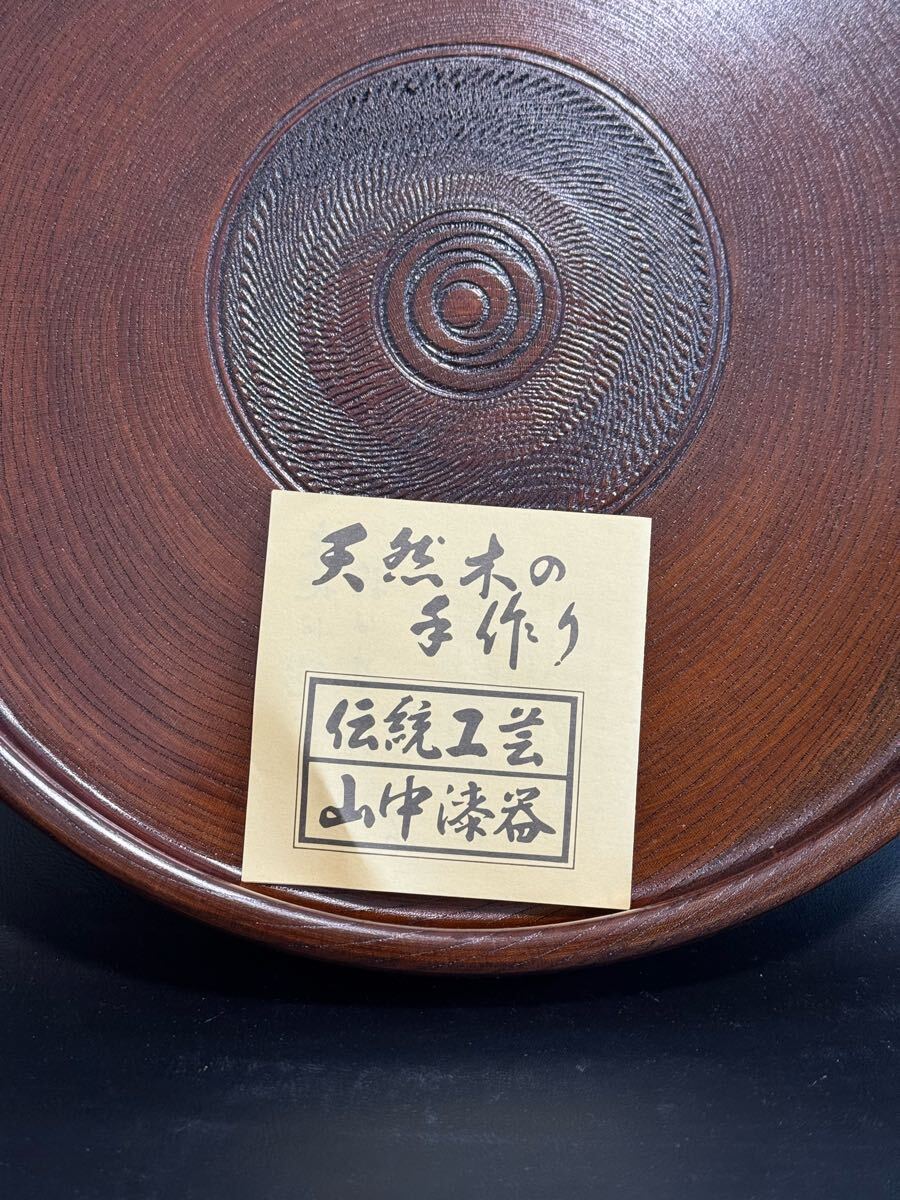 天然木の
手作り
伝統工芸
山中漆器